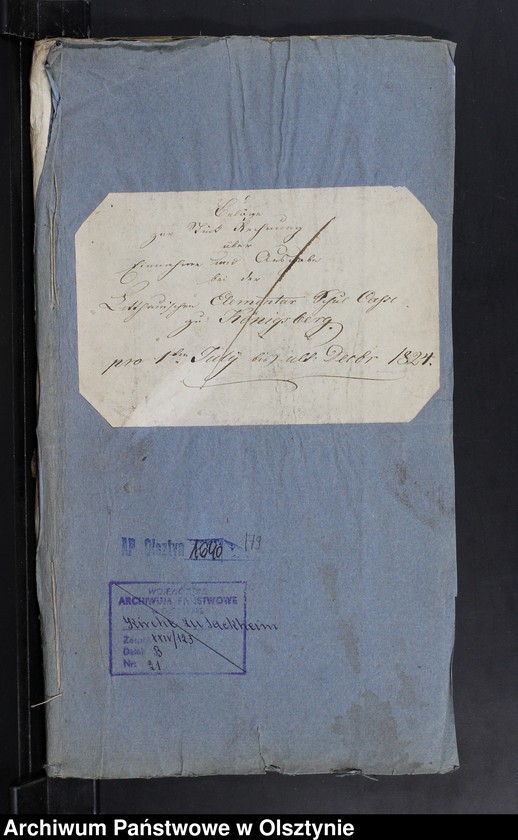 Beläge
zur Stück Rechnung
über
Einnahme und Ausgabe
bei der
Litthauischen Elementar Schul Casse
zu Königsberg.
pro 1ten July bis ult. Decbr 1824.
AP Olsztyn 1640 179
ARCHIWUM PAŃSTWOWE
Kirche zu Sackheim
XXVI/123
Dział B
Nr. 21
Archiwum Państwowe w Olsztynie